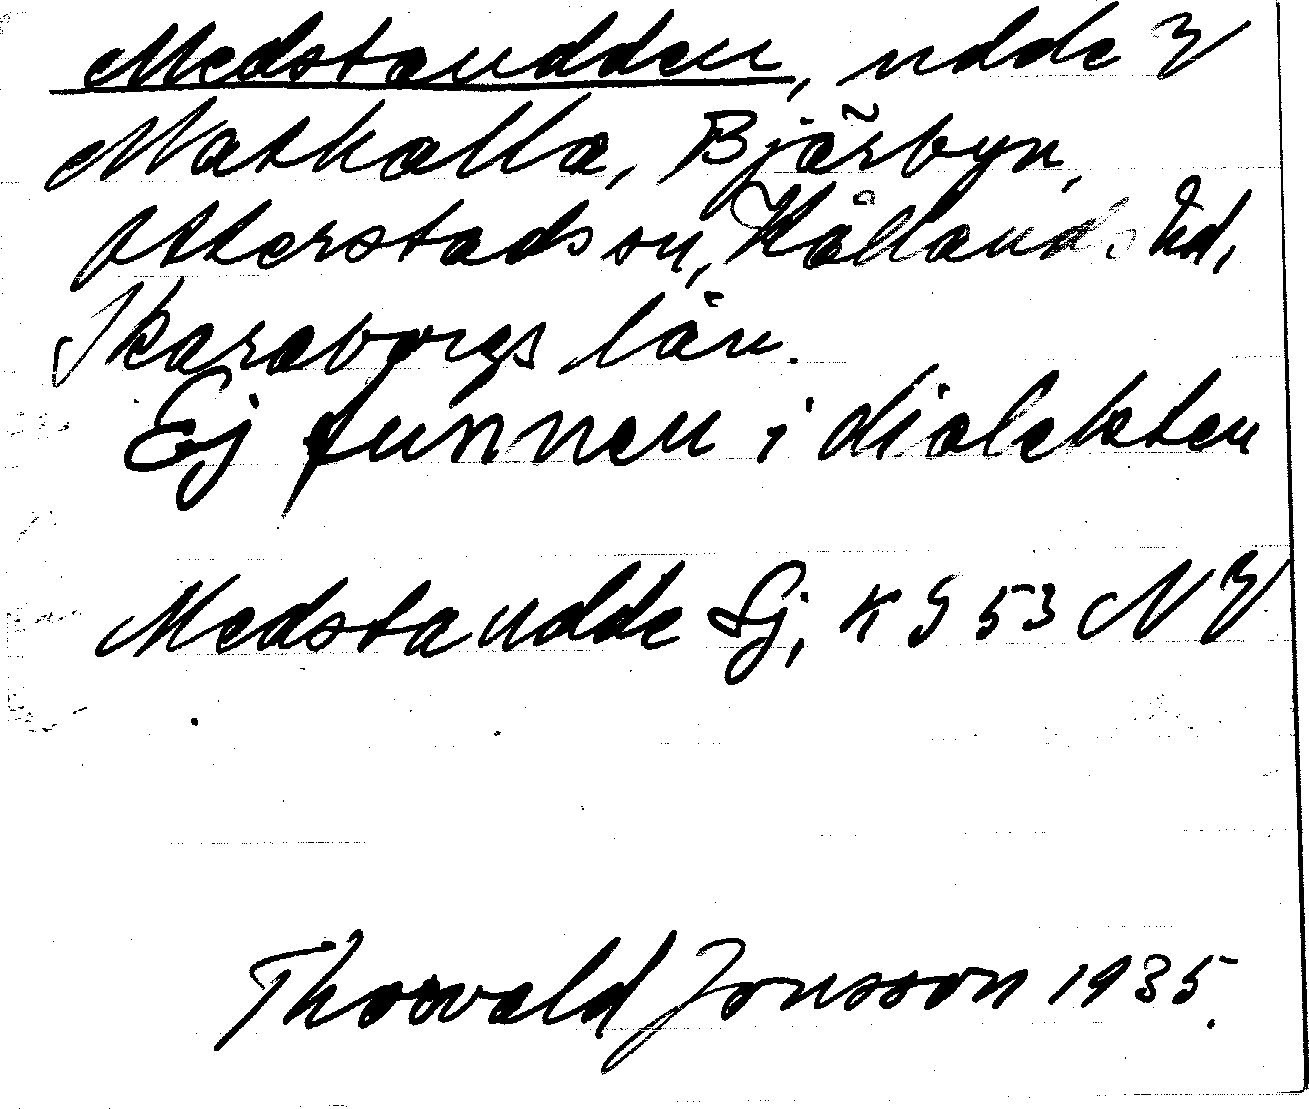 Medstaudden, udde V
Matkalla, Bjärbyn,
Otterstads sn, Kållands hd,
Skaraborgs län.
Ej funnen i dialekten
Medstaudde Sj, k G 53 NV
Thorvald Jonsson 1935.